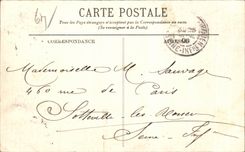 CARTE POSTALE
Tous les Pays étrangers n'acceptent pas la Correspondance au recto
(Se renseigner à la Poste)
CORRESPONDANCE
Mademoiselle M. Sauvage
460 rue de Paris
Sotteville les Rouen
Seine Inf